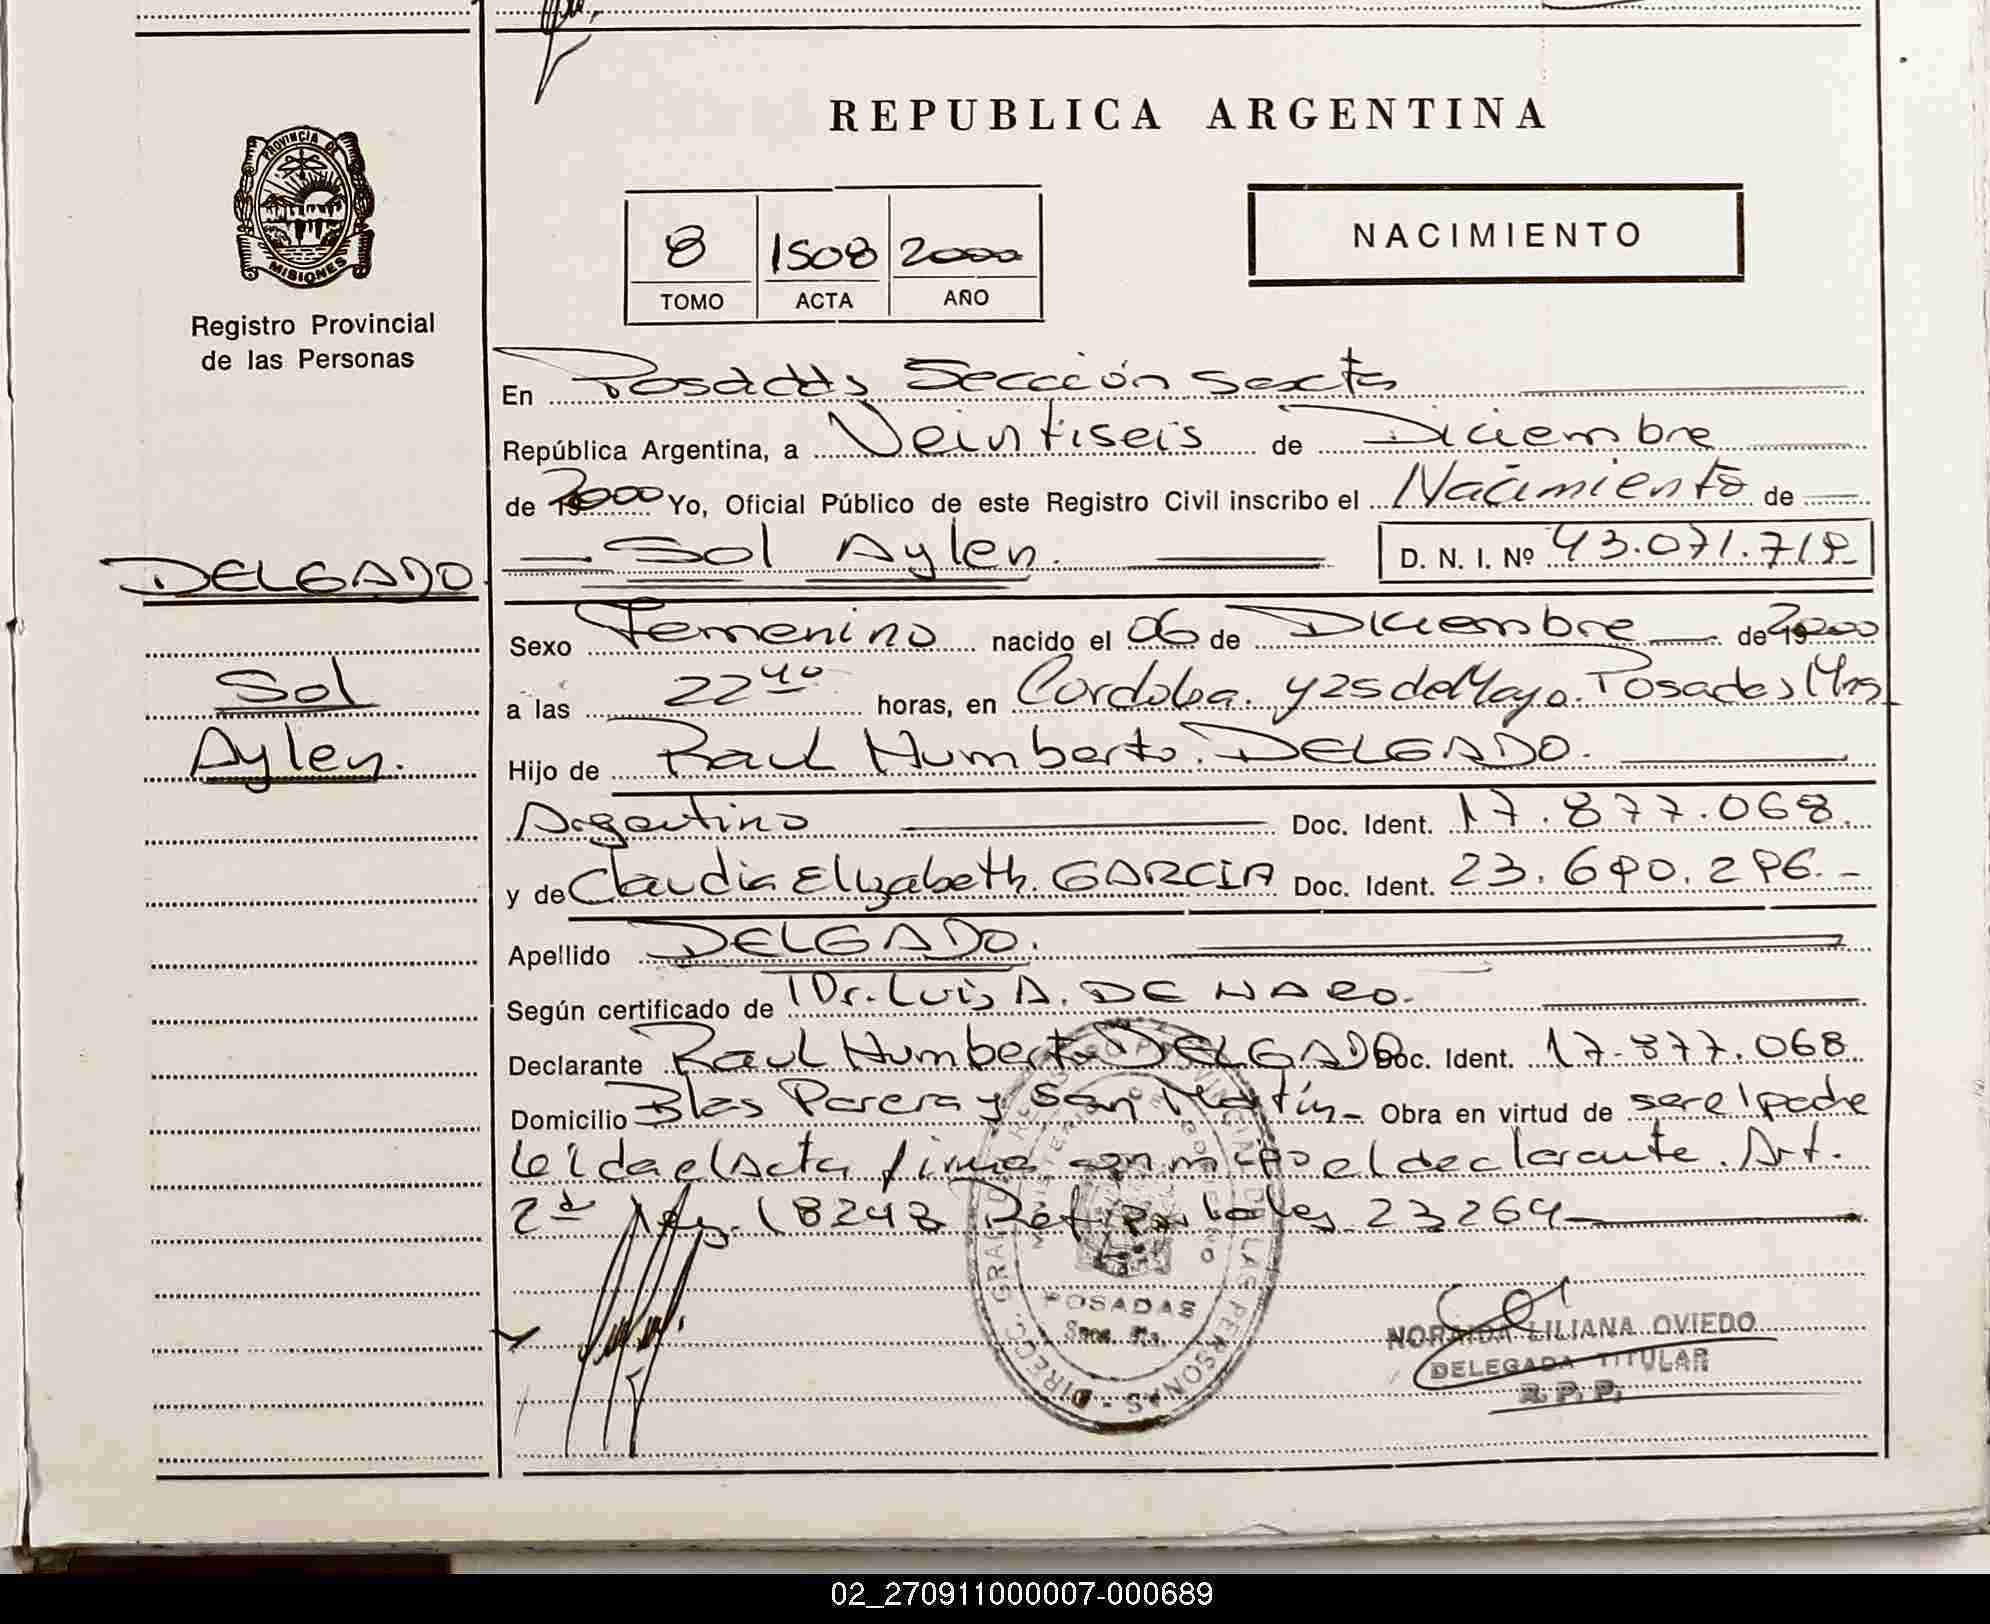 REPUBLICA ARGENTINA
PROVINCIA DE
MISIONES
Registro Provincial
de las Personas
8 1508 2000
TOMO ACTA AÑO
NACIMIENTO
En Posadas Sección Sexta
República Argentina, a Veintiseis de Diciembre
de 2000 Yo, Oficial Público de este Registro Civil inscribo el Nacimiento de
Sol Aylen. D. N. I. Nº 43.071.719
DELGADO
Sol
Aylen.
Sexo Femenino nacido el 06 de Diciembre de 2000
a las 22 40 horas, en Cordoba. y 25 de Mayo. Posadas Mns
Hijo de Raul Humberto. DELGADO.
Argentino Doc. Ident. 17.877.068.
y de Claudia Elizabeth. GARCIA Doc. Ident. 23.690.296.-
Apellido DELGADO.
Según certificado de Dr. Luis A. DE HARO.
Declarante Raul Humberto DELGADO Doc. Ident. 17.877.068
Domicilio Blas Parera y San Martín - Obra en virtud de ser el padre
leida el Acta firma con migo el declarante. Art.
2da Ley. 18248 Ref. por la ley 23264
DIRECC. GRAL. DE REGISTRO PROVINCIAL DE LAS PERSONAS
MINISTERIO DE GOBIERNO
POSADAS
Secc. 6ta.
NORAIDA LILIANA OVIEDO
DELEGADA TITULAR
R. P. P.
02_270911000007-000689